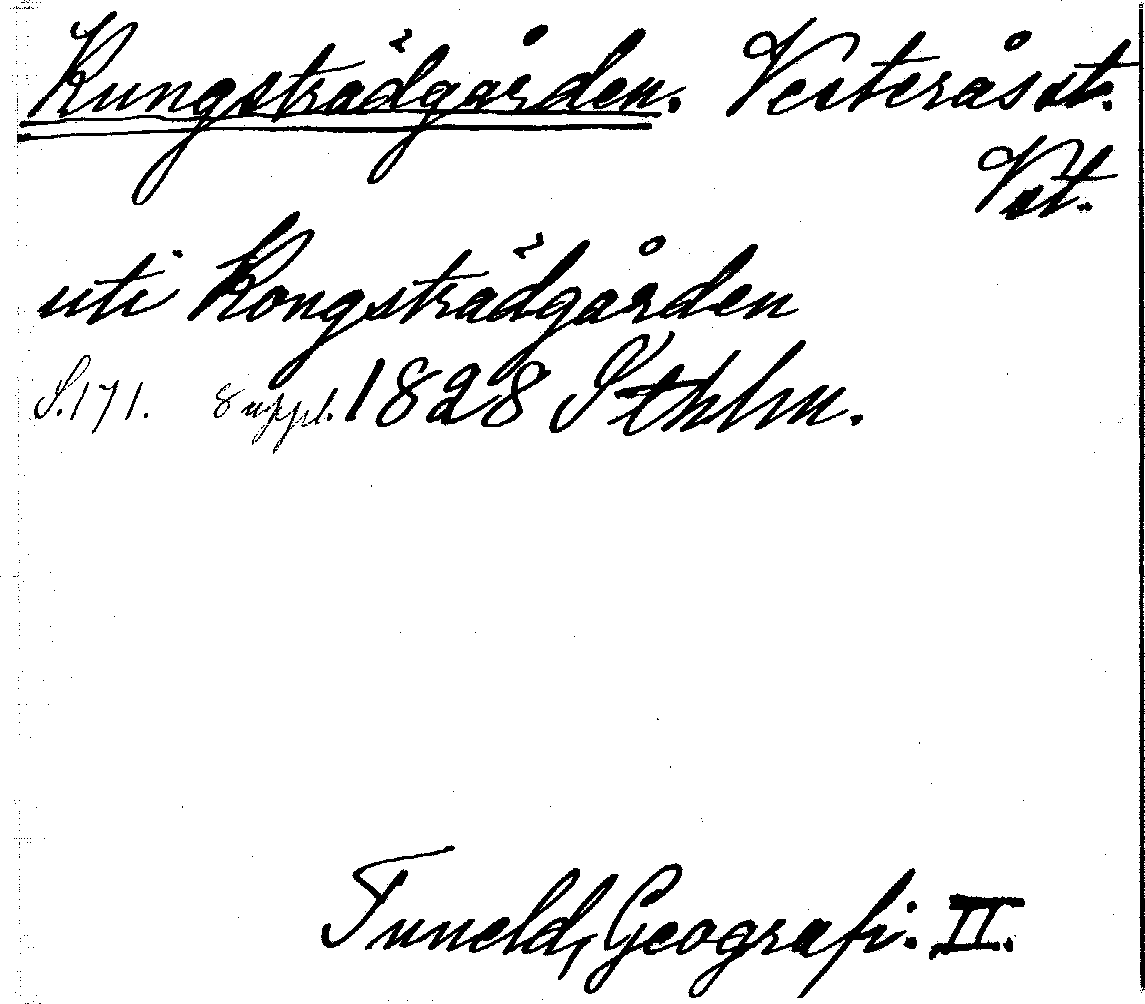 Kungsträdgården. Vesterås st.
Vst.
uti Kongsträdgården
S.171. 8 uppl. 1828 Sthlm.
Tuneld, Geografi. II.